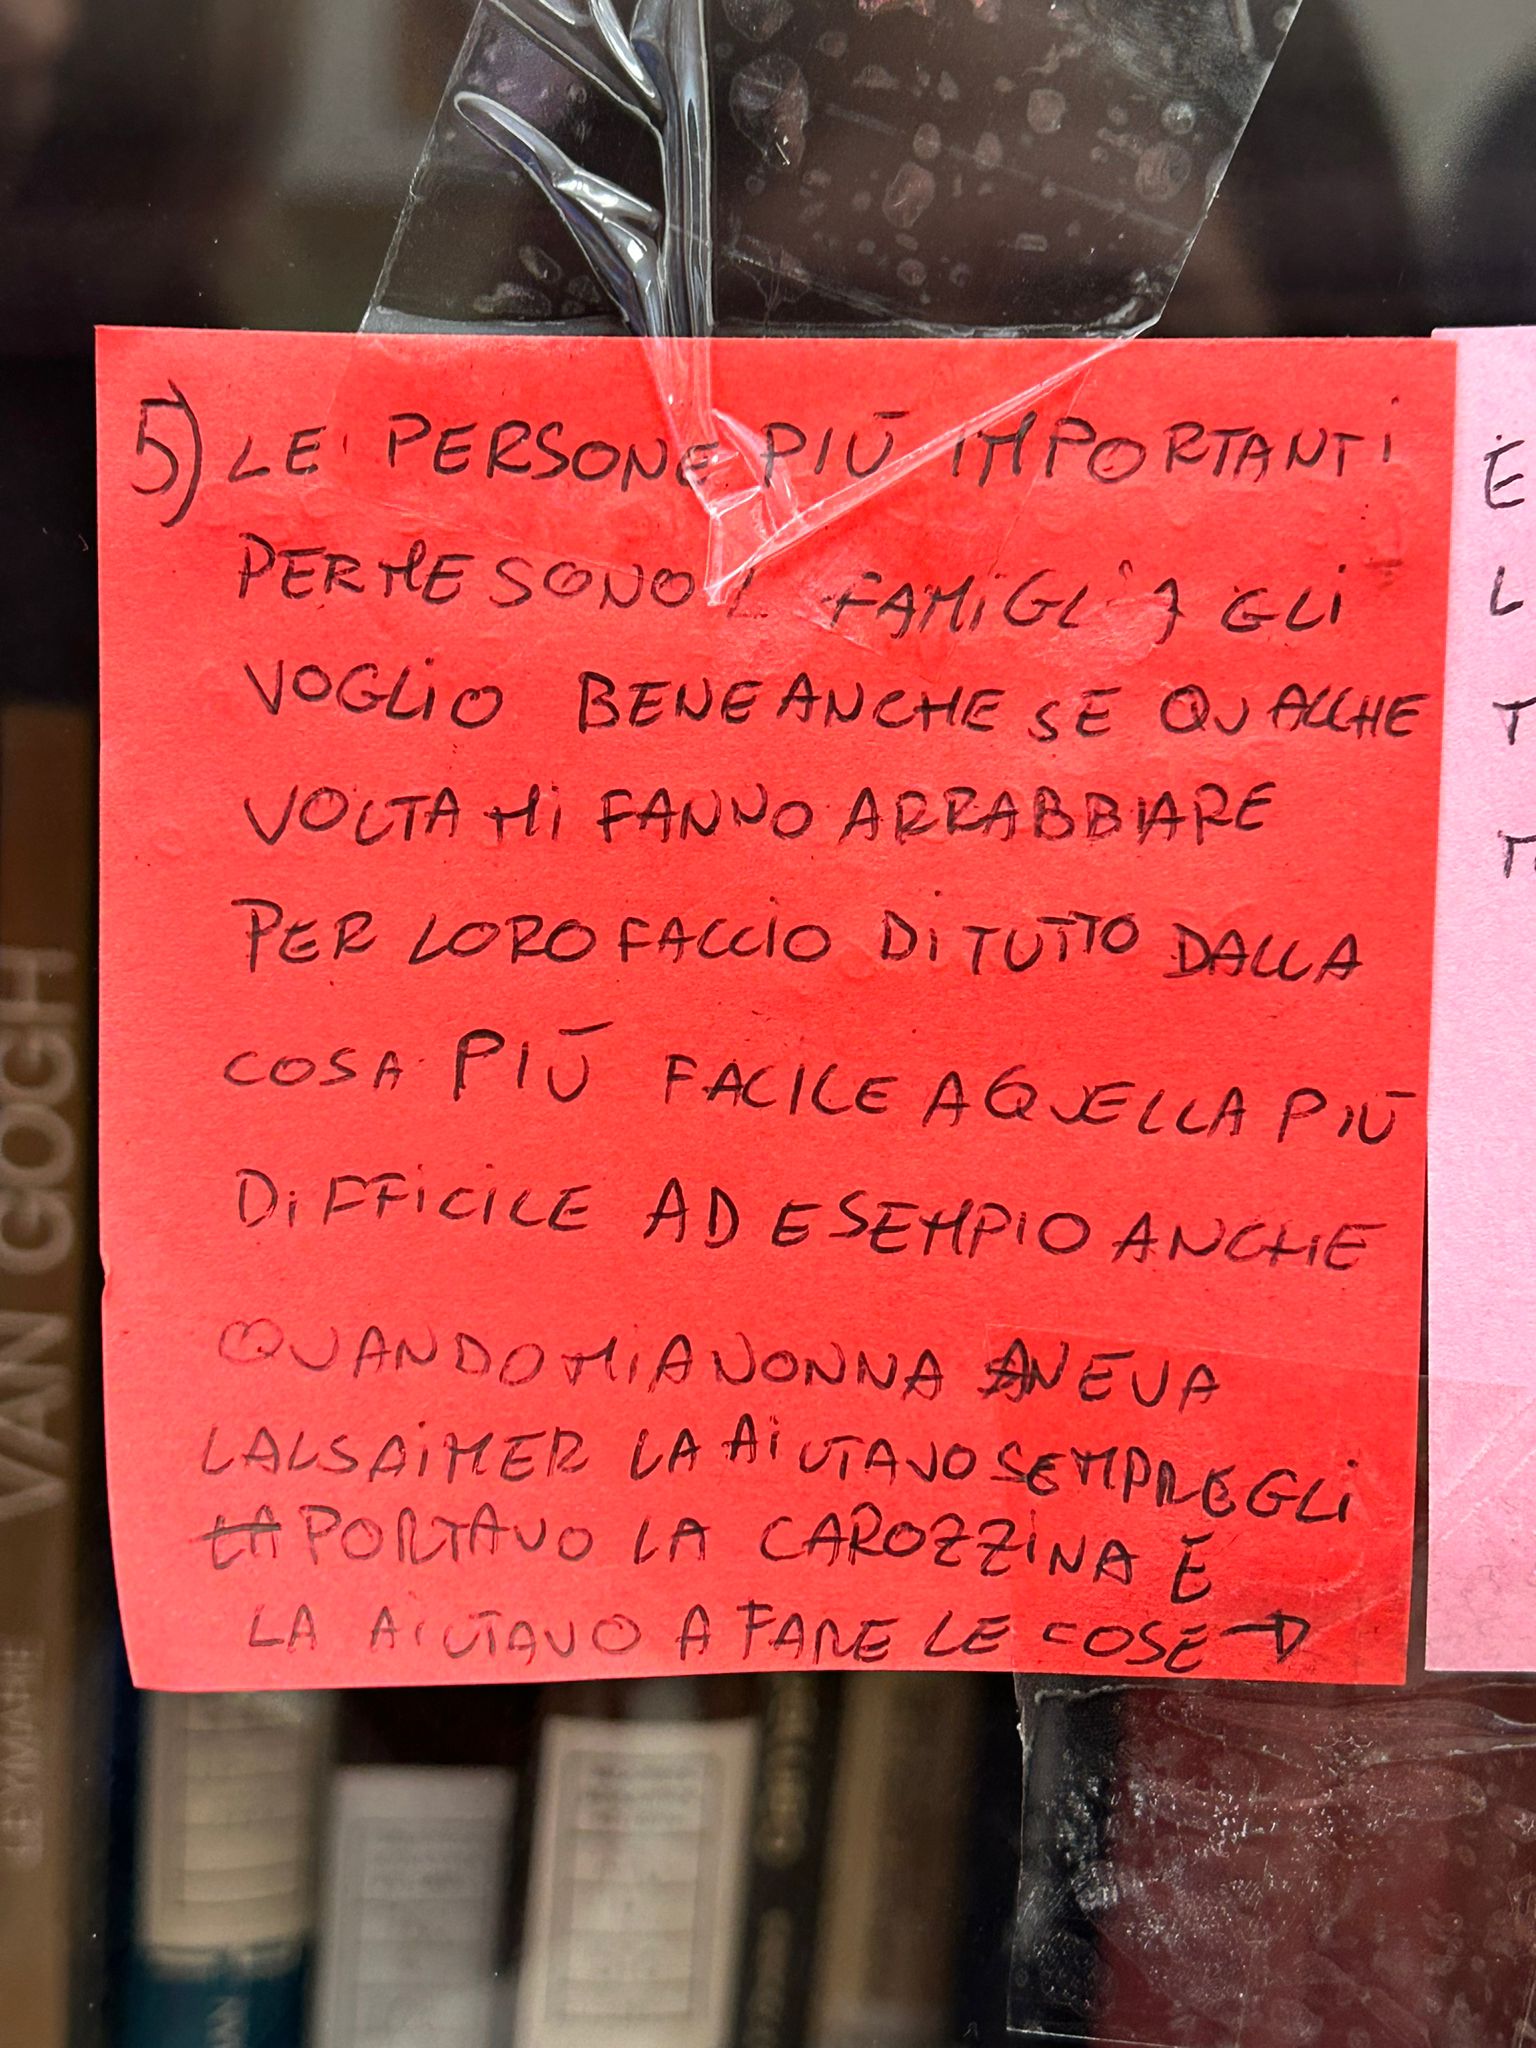 5) LE PERSONE PIÙ IMPORTANTI
PER ME SONO L FAMIGLIA GLI
VOGLIO BENE ANCHE SE QUALCHE
VOLTA MI FANNO ARRABBIARE
PER LORO FACCIO DI TUTTO DALLA
COSA PIÙ FACILE A QUELLA PIÙ
DIFFICILE AD ESEMPIO ANCHE
QUANDO MIA NONNA ANEVA
LALSAIMER LA AIUTAVO SEMPRE GLI
PORTAVO LA CAROZZINA E
LA AIUTAVO A FARE LE COSE →
E
L
T
VAN GOGH
LEYMARIE